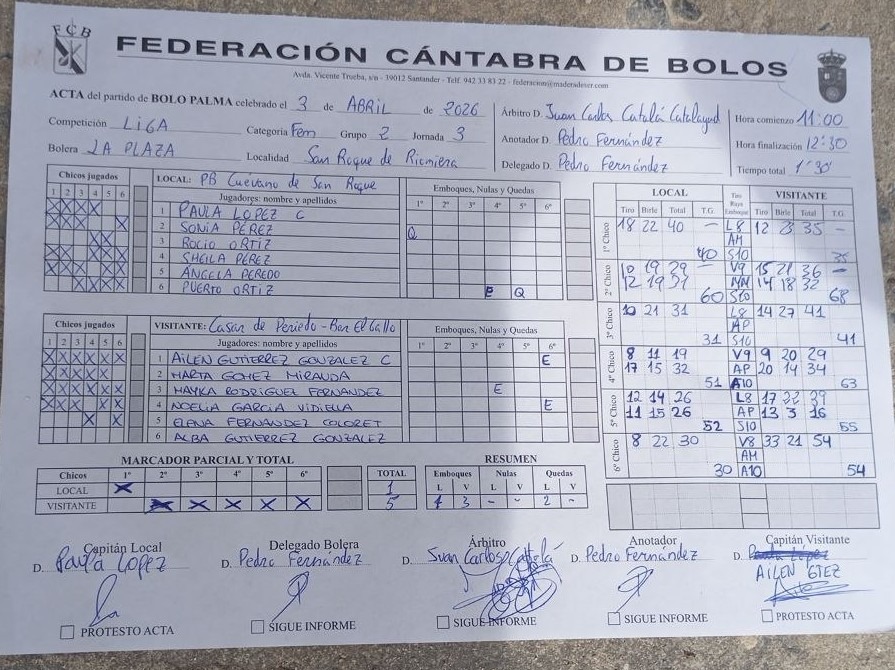 FCB
FEDERACIÓN CÁNTABRA DE BOLOS
Avda. Vicente Trueba, s/n - 39012 Santander - Telf. 942 33 83 22 - federacion@maderadeser.com
ACTA del partido de BOLO PALMA celebrado el 3 de ABRIL de 2026
Competición LIGA Categoría Fem Grupo 2 Jornada 3
Bolera LA PLAZA Localidad San Roque de Riomiera
Árbitro D. Juan Carlos Catalá Catalayud
Anotador D. Pedro Fernández
Delegado D. Pedro Fernández
Hora comienzo 11:00
Hora finalización 12:30
Tiempo total 1'30'
Chicos jugados
1 2 3 4 5 6
LOCAL: PB Cuévano de San Roque
Jugadores: nombre y apellidos
Emboques, Nulas y Quedas
1º 2º 3º 4º 5º 6º
1 PAULA LOPEZ C
2 SONIA PÉREZ Q
3 ROCIO ORTIZ
4 SHEILA PÉREZ
5 ÁNGELA PEREDO
6 PUERTO ORTIZ E Q
Chicos jugados
1 2 3 4 5 6
VISITANTE: Casar de Periedo - Bar El Gallo
Jugadores: nombre y apellidos
Emboques, Nulas y Quedas
1º 2º 3º 4º 5º 6º
1 AILEN GUTIERREZ GONZALEZ C E
2 MARTA GOMEZ MIRANDA
3 MAYKA RODRIGUEZ FERNANDEZ E
4 NOELIA GARCIA VIDIELLA E
5 ELENA FERNANDEZ COLORET
6 ALBA GUTIERREZ GONZALEZ
LOCAL Tiro Raya Emboque VISITANTE
Tiro Birle Total T.G. Tiro Birle Total T.G.
1º Chico 18 22 40 - L8 12 23 35 -
AM
40 S10 35
2º Chico 10 19 29 - V9 15 21 36 -
12 19 31 MM 14 18 32
60 S10 68
3º Chico 10 21 31 L8 14 27 41
AP
31 S10 41
4º Chico 8 11 19 V9 9 20 29
17 15 32 AP 20 14 34
51 A10 63
5º Chico 12 14 26 L8 17 22 39
11 15 26 AP 13 3 16
52 S10 55
6º Chico 8 22 30 V8 33 21 54
AM
30 A10 54
MARCADOR PARCIAL Y TOTAL
Chicos 1º 2º 3º 4º 5º 6º TOTAL
LOCAL X 1
VISITANTE X X X X X 5
RESUMEN
Emboques Nulas Quedas
L V L V L V
1 3 - - 2 -
Capitán Local
D. Paula Lopez
PROTESTO ACTA
Delegado Bolera
D. Pedro Fernández
SIGUE INFORME
Árbitro
D. Juan Carlos Catalá
SIGUE INFORME
Anotador
D. Pedro Fernández
SIGUE INFORME
Capitán Visitante
D. Paula López
AILEN GTEZ
PROTESTO ACTA